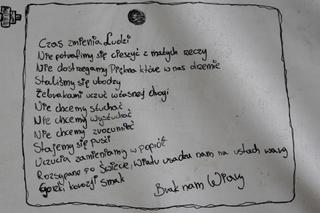 Czas zmienia Ludzi
Nie potrafimy się cieszyć z małych rzeczy
Nie dostrzegamy Piękna które w nas drzemie
Staliśmy się ubodzy
Żebrakami uczuć własnej drogi
Nie chcemy słuchać
Nie chcemy wysłuchać
Nie chcemy zrozumieć
Stajemy się puści
Uczucia zamieniamy w popiół
Rozsypane po świecie, wiatru osadza nam na ustach
Gorzki smak
Brak nam Wiary